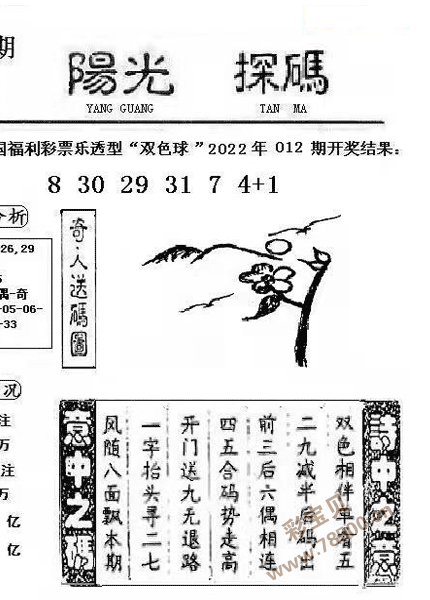 期
陽光 探碼
YANG GUANG TAN MA
国福利彩票乐透型“双色球”2022年 012 期开奖结果：
8 30 29 31 7 4+1
分析
26,29
5
偶-奇
-05-06-
-33
奇人送碼圖
况
注
万
注
万
亿
亿
诗中之意
双色相伴单看五
二九减半后码出
前三后六偶相连
四五合码势走高
开门送九无退路
一字抬头寻二七
风随八面飘本期
意中之碼
彩宝贝
www.78500.cn